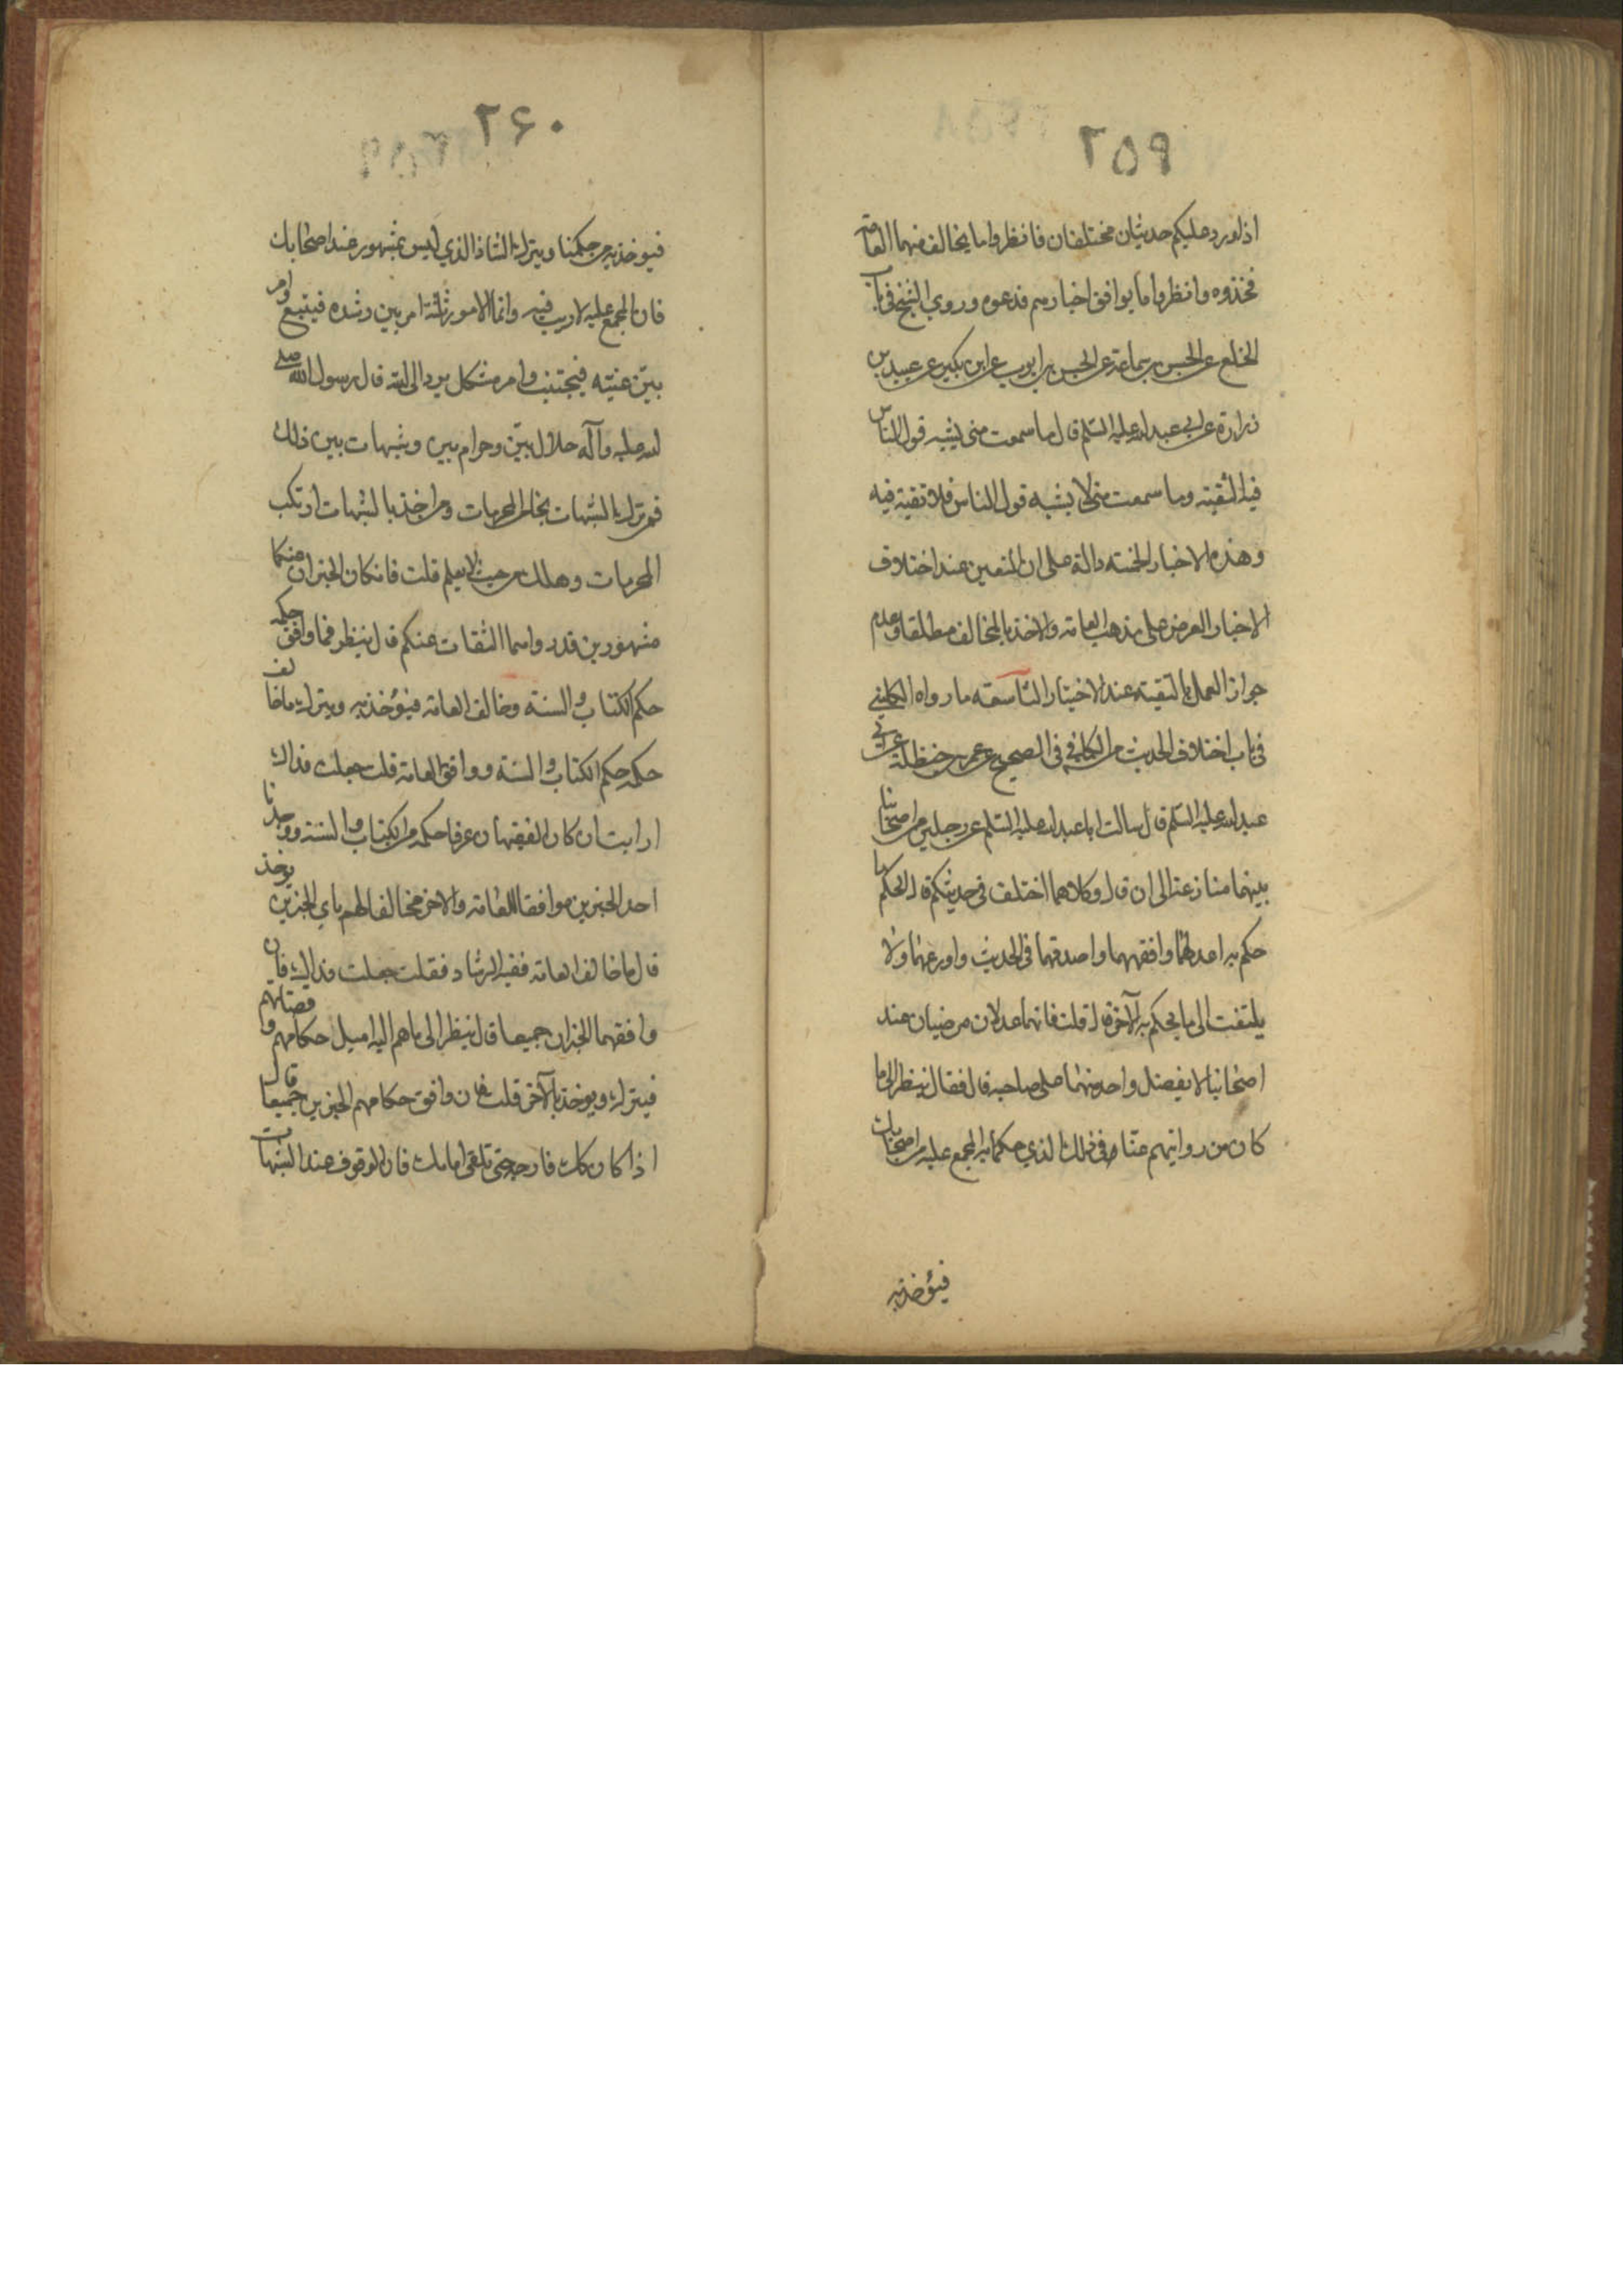 ۲۵۹
اذا ورد عليكم حديثان مختلفان فانظروا ما يخالف منهما العامة
فخذوه وانظروا ما يوافق اخبارهم فدعوه وروي الشيخ في باب
الخلع عن الحسن بن سماعة عن الحسن بن ايوب عن ابن بكير عن عبيد بن
زرارة عن ابي عبد الله عليه السلم قال ما سمعت مني يشبه قول الناس
فيه التقية وما سمعت مني لا يشبه قول الناس فلا تقية فيه
وهذه الاخبار الخمسة دالة على ان المتعين عند اختلاف
الاخبار العرض على مذهب العامة والاخذ بالمخالف مطلقا وعدم
جواز العمل بالتقية عند الاختيار التاسعة ما رواه الكليني
في باب اختلاف الحديث من الكافي في الصحيح عن عمر بن حنظلة عن ابي
عبد الله عليه السلم قال سالت ابا عبد الله عليه السلم عن رجلين من اصحابنا
بينهما منازعة الى ان قال وكلاهما اختلف في حديثكم قال الحكم ما
حكم به اعدلهما وافقههما واصدقهما في الحديث واورعهما ولا
يلتفت الى ما يحكم به الآخر قال قلت فانهما عدلان مرضيان عند
اصحابنا لا يفضل واحد منهما على صاحبه قال فقال ينظر الى ما
كان من روايتهم عنا في ذلك الذي حكما به المجمع عليه من اصحابك
فيؤخذ به
۲۶۰
فيوخذ به من حكمنا ويترك الشاذ الذي ليس بمشهور عند اصحابك
فان المجمع عليه لا ريب فيه وانما الامور ثلثة امر بين رشده فيتبع وامر
بيّن غيّه فيجتنب وامر مشكل يرد الى الله قال رسول الله صلى
الله عليه وآله حلال بيّن وحرام بين وشبهات بين ذلك
فمن ترك الشبهات نجا من المحرمات ومن اخذ بالشبهات ارتكب
المحرمات وهلك من حيث لا يعلم قلت فان كان الخبران عنكما
مشهورين قد رواهما الثقات عنكم قال ينظر فما وافق حكمه
حكم الكتاب والسنة وخالف العامة فيؤخذ به ويترك ما خالف
حكمه حكم الكتاب والسنة ووافق العامة قلت جعلت فداك
ارايت ان كان الفقيهان عرفا حكمه من الكتاب والسنة ووجدنا
احد الخبرين موافقا للعامة والاخر مخالفا لهم باي الخبرين يوخذ
قال ما خالف العامة ففيه الرشاد فقلت جعلت فداك فان
وافقهما الخبران جميعا قال ينظر الى ما هم اليه اميل حكامهم وقضاتهم
فيترك ويوخذ بالآخر قلت فان وافق حكامهم الخبرين جميعا قال
اذا كان ذلك فارجه حتى تلقى امامك فان الوقوف عند الشبهات